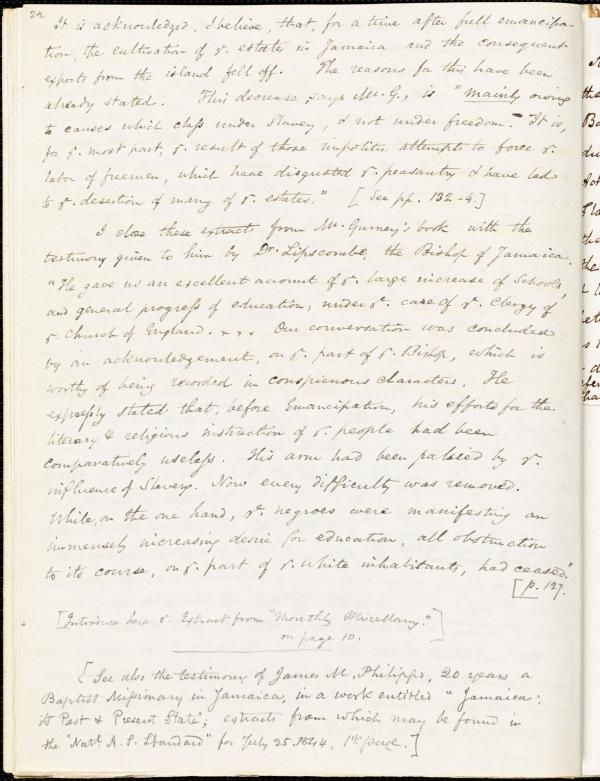 24
It is acknowledged, I believe, that, for a time after full emancipa-
tion, the cultivation of ye. estates in Jamaica and the consequent
exports from the island fell off. The reasons for this have been
already stated. This decrease, says Mr. G., is "mainly owing
to causes which class under Slavery, & not under freedom. It is,
for ye. most part, ye. result of those impolitic attempts to force ye.
labor of freemen, which have disgusted ye. peasantry & have led
to ye. desertion of many of ye. estates." [See pp. 132-4.]
I close these extracts from Mr. Gurney's book with the
testimony given to him by Dr. Lipscombe, the Bishop of Jamaica.
"He gave us an excellent account of ye. large increase of Schools,
and general progress of education, under ye. care of ye. Clergy of
ye. Church of England. x x x Our conversation was concluded
by an acknowledgement, on ye. part of ye. Bishop, which is
worthy of being recorded in conspicuous characters. He
expressly stated that, before Emancipation, his efforts for the
literary & religious instruction of ye. people had been
comparatively useless. His arm had been palsied by ye.
influence of Slavery. Now every difficulty was removed.
While, on the one hand, ye. negroes were manifesting an
immensely increasing desire for education, all obstruction
to its course, on ye. part of ye. white inhabitants, had ceased."
[p. 127.
[Introduce here ye. Extract from "Monthly Miscellany."
on page 10.]
[See also the testimony of James M. Philippo, 20 years a
Baptist Missionary in Jamaica, in a work entitled "Jamaica;
its Past & Present State'; extracts from which may be found in
the "Natl. A. S. Standard" for July 25, 1844, 1st page.]